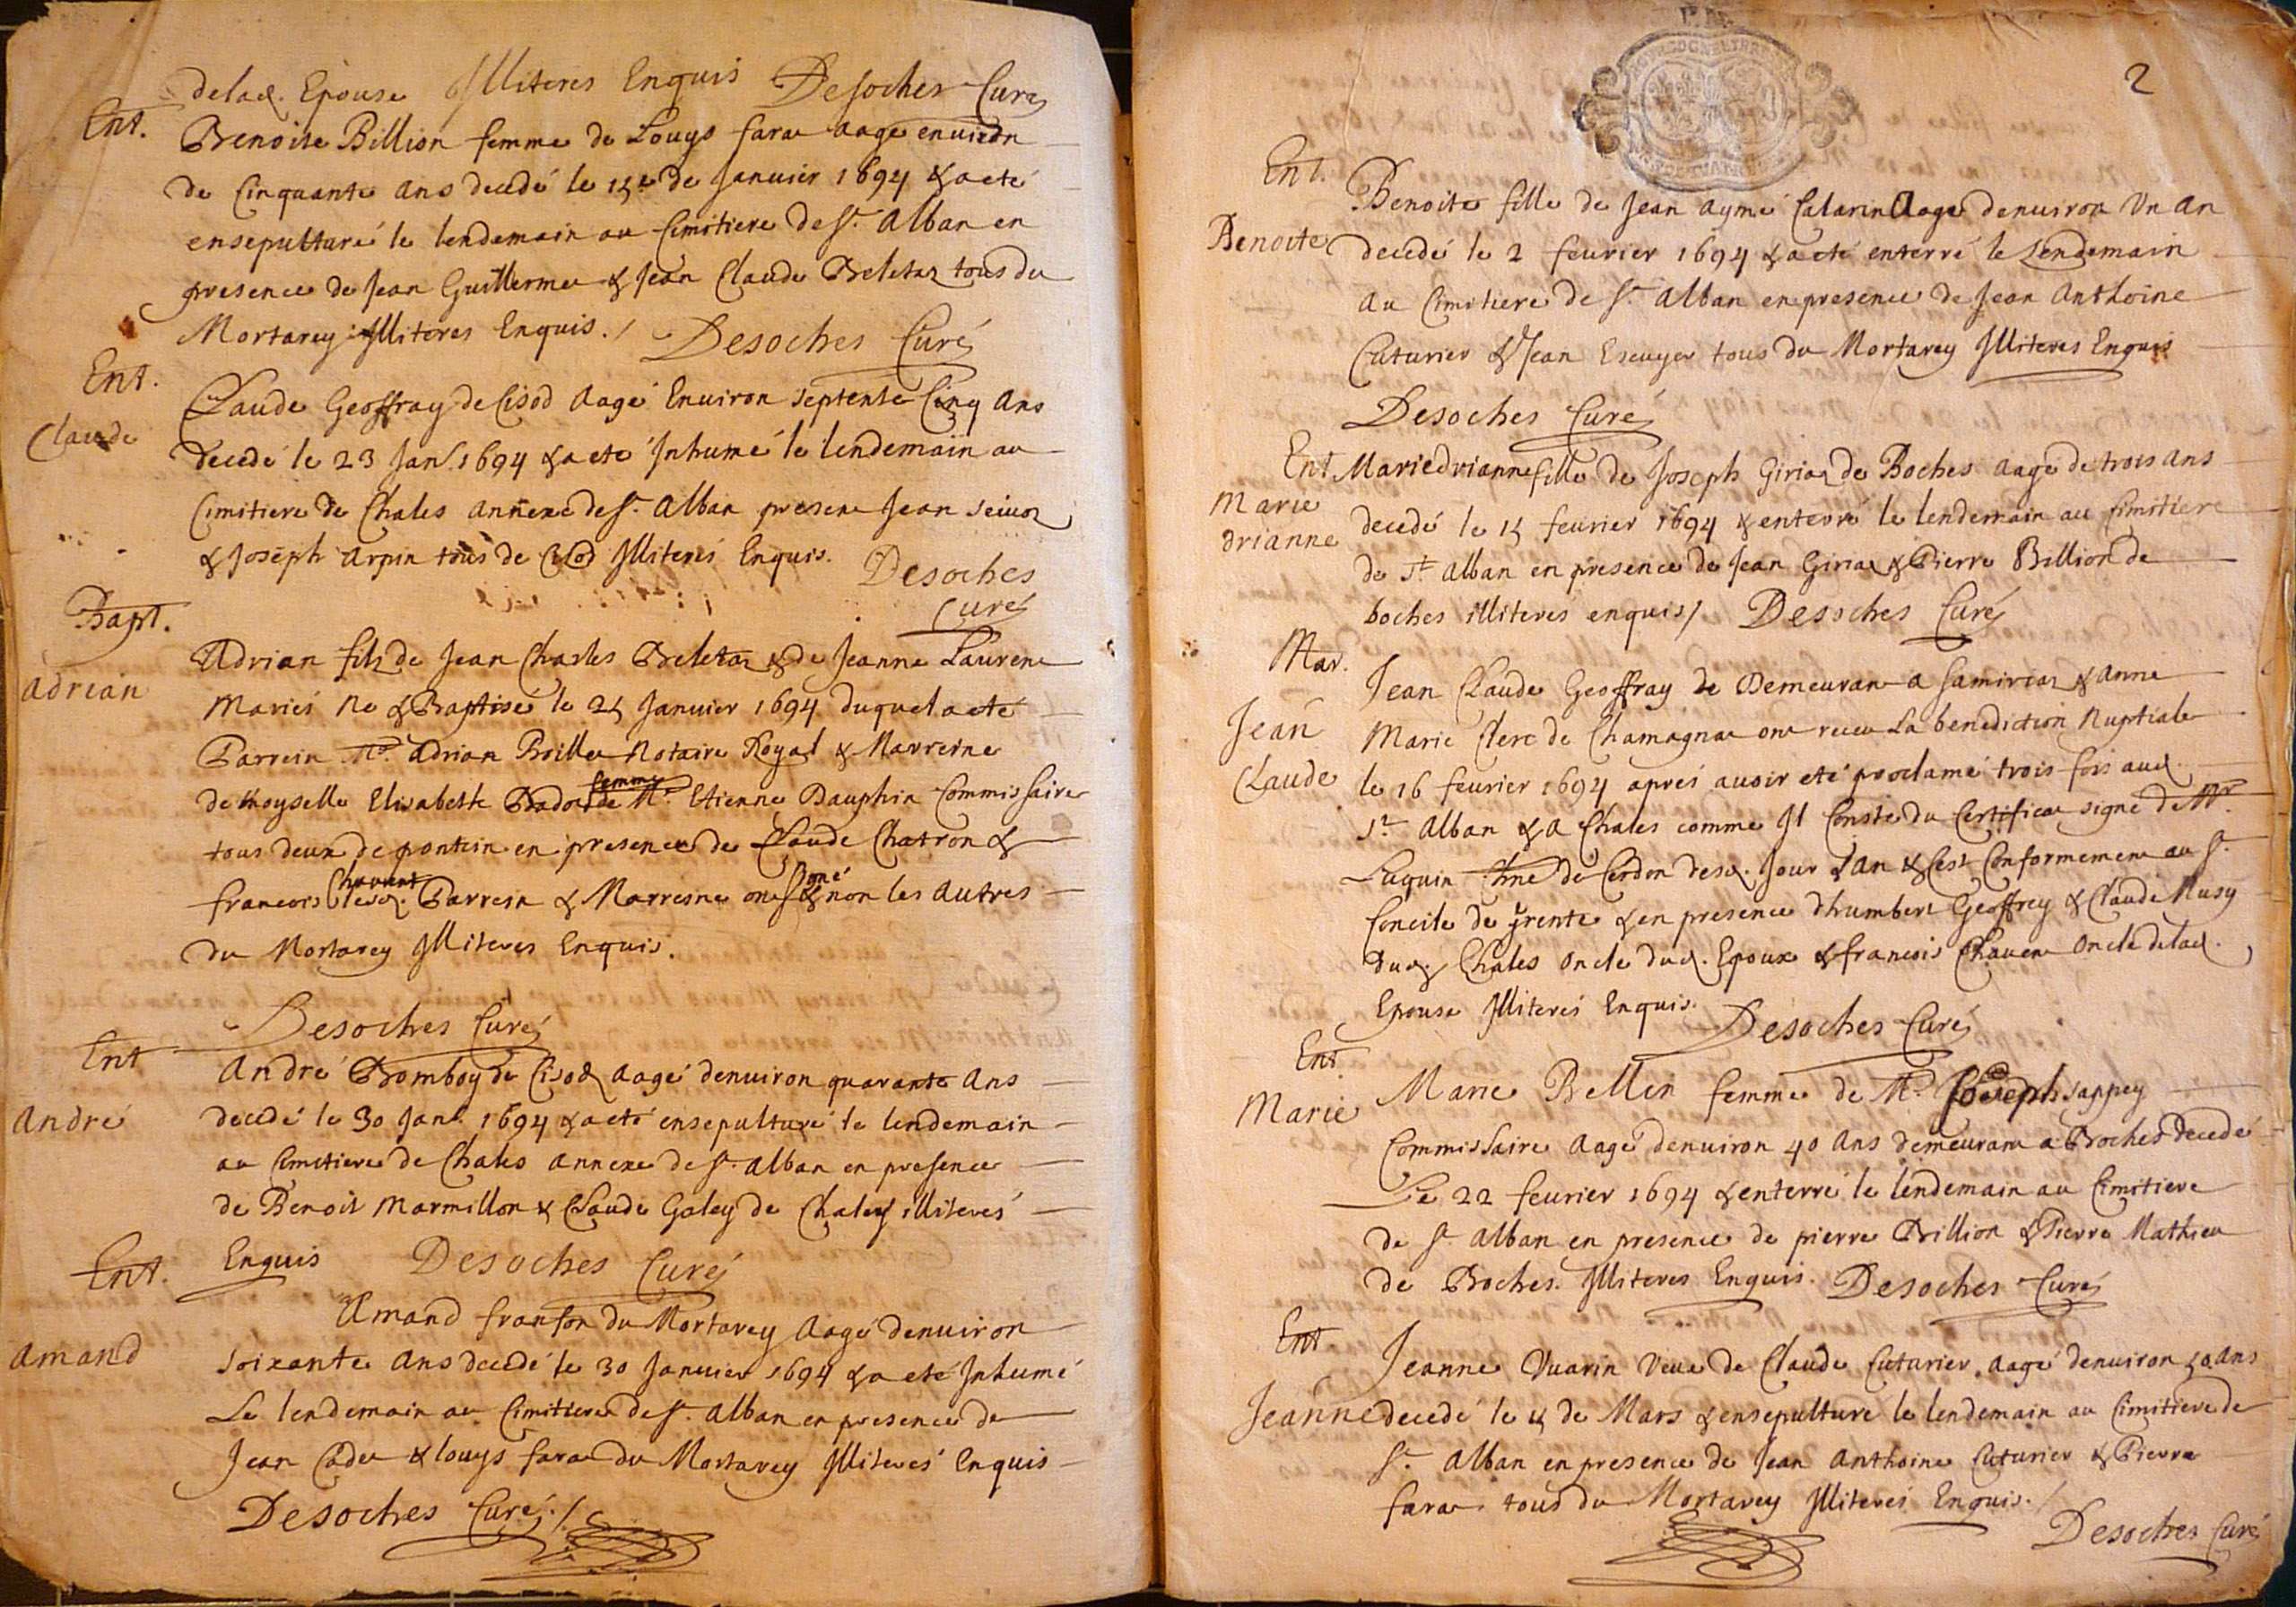 delad. Epouse Illiteres Enquis Desoches Curé
Ent.
Benoite Billion femme de Louys fara aage environ
de Cinquante ans decedé le 15e de Januier 1694 & a eté
ensepulturé le lendemain au Cimitiere de St. Alban en
presence de Jean Guillerme & Jean Claude Beletaz tous du
Mortarey Illiteres Enquis. / Desoches Curé
Ent.
Claude
Claude Geoffray de Cisod aagé Enuiron septente Cinq ans
decedé le 23 Janr. 1694 & a eté Inhumé le lendemain au
Cimitiere de Chales annexe de St. Alban presene Jean
& Joseph Arpin tous de Cisod Illiterés Enquis. Desoches
Curé
Bapt.
Adrian
Adrian filz de Jean Charles Beletaz & de Jeanne Laurene
Mariés Ne & Baptisé le 25 Januier 1694 duquel a eté
Parrein Mr. Adrian Boille Notaire Royal & Marreine
demoyselle Elisabeth femme de Mr. Etienne Dauphin Commissaire
tous deux de pontein en presence de Claude Chatron &
francois Chavent Parrein & Marreine one signé & non les autres
du Mortarey Illiteres Enquis.
Desoches Curé
Ent
André
André Bomboy de Cisod aagé denuiron quarante ans
decedé le 30 Janr. 1694 & a eté ensepulturé le lendemain
au Cimitiere de Chales annexe de St. alban en presence
de Benoit Marmillon & Claude Galey de Chaley illiterés
Enquis Desoches Curé
Ent.
Amand
Amand franson du Mortarey Aagé denuiron
soixante ans decedé le 30 Januier 1694 & a eté Inhumé
Le lendemain au Cimitiere de St. alban en presence de
Jean Cader & louys fara du Mortarey Illiterés Enquis
Desoches Curé. /
2
Ent.
Benoite
Benoite fille de Jean aymé Catarin Aage denuiron Un an
decedé le 2 feurier 1694 & a eté enterré le Lendemain
au Cimitiere de St. Alban en presence de Jean Anthoine
Cuturier & Jean Escuyer tous du Mortarey Illiteres Enquis
Desoches Curé
Ent
Marie
drianne
Mariedrianne fille de Joseph Giriaz de Boches aagé de trois ans
decedé le 15 feurier 1694 & enterré le lendemain au Cimitiere
de St. alban en presence de Jean Giriaz & Pierre Billion de
boches illiteres enquis / Desoches Curé
Mar.
Jean
Claude
Jean Claude Geoffray de Demeuran a Samiriaz & Anne
Marie Clerc de Chamagna one receu La benediction Nuptiale
le 16 feurier 1694 aprés auoir eté proclamé trois fois aud.
St. Alban & a Chales comme Il Conste du Certificae signé de Mr.
Luquin de Cerdon desd. Jour & An & Cest Conformemene au St.
Concile de Trente & en presence dhumbert Geoffrey & Claude Musy
dud. Chales Oncle dud. Epoux & francois Chavene Oncle delad.
Epouse Illiterés Enquis. Desoches Curé
Ent
Marie
Marie Bellin femme de Mr. Joseph sappey
Commissaire aagé denuiron 40 ans demeurane a Boches decedé
Le 22 feurier 1694 & enterré le lendemain au Cimitiere
de St. Alban en presence de pierre Billion & Pierre Mathieu
de Boches. Illiteres Enquis. Desoches Curé
Ent.
Jeanne
Jeanne Vuarin Veue de Claude Cuturier aagé denuiron 50 ans
decedé le 15 de Mars & ensepulture le lendemain au Cimitiere de
St. Alban en presence de Jean Anthoine Cuturier & Pierre
fara tous du Mortarey Illiterés Enquis. /
Desoches Curé